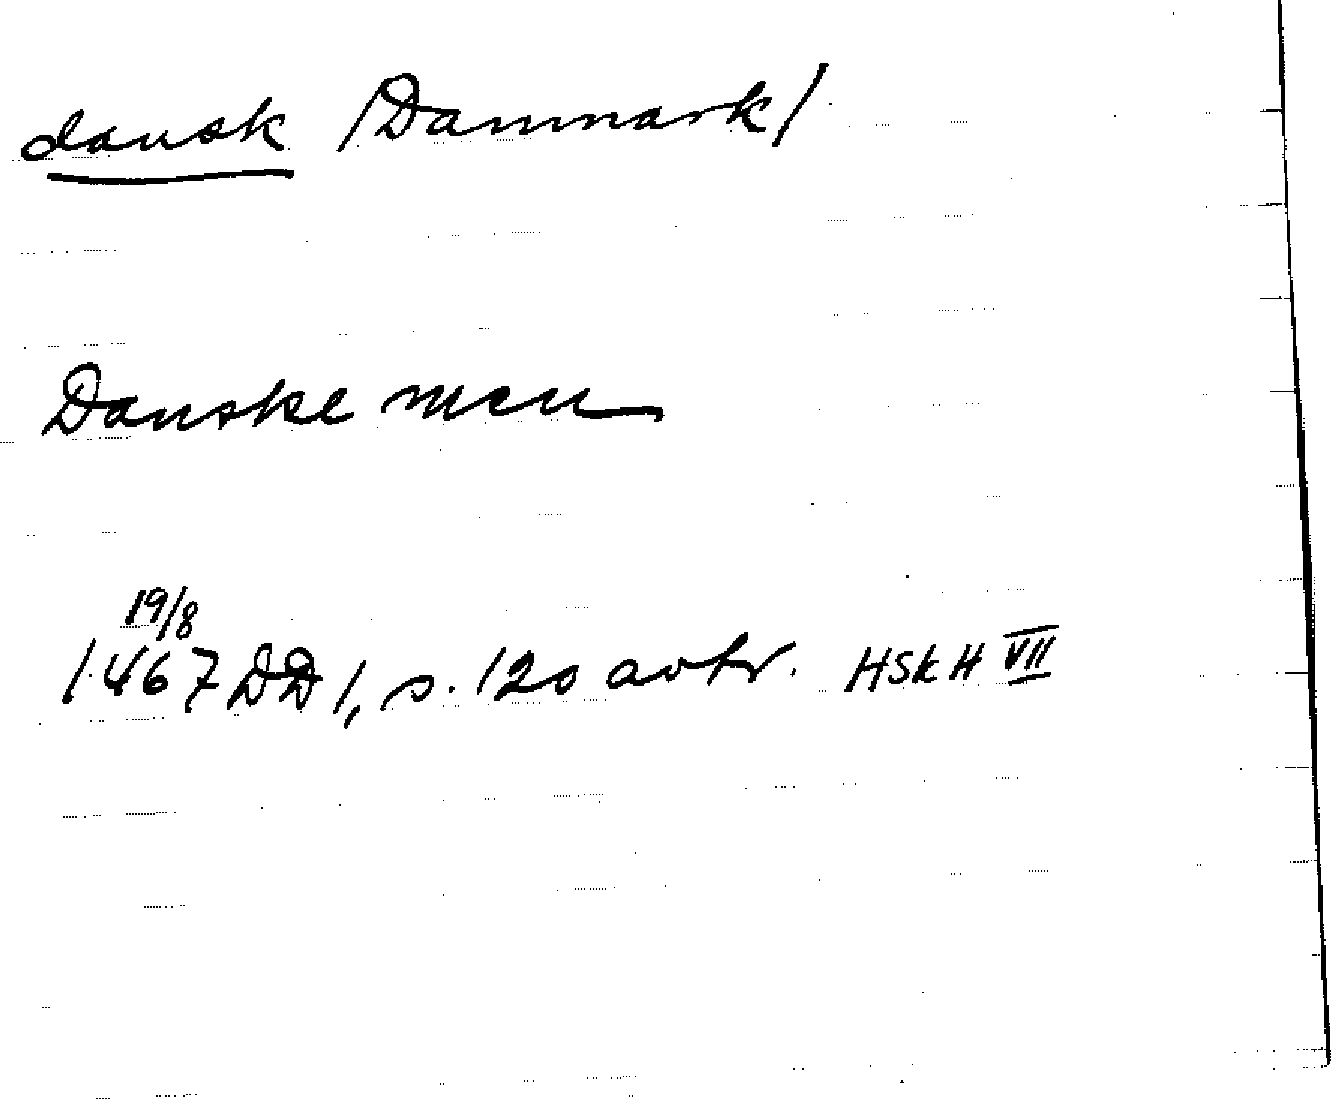 dansk /Danmark/
Danske men
19/8
1467 DD 1, s. 120 avtr. HSkH VII